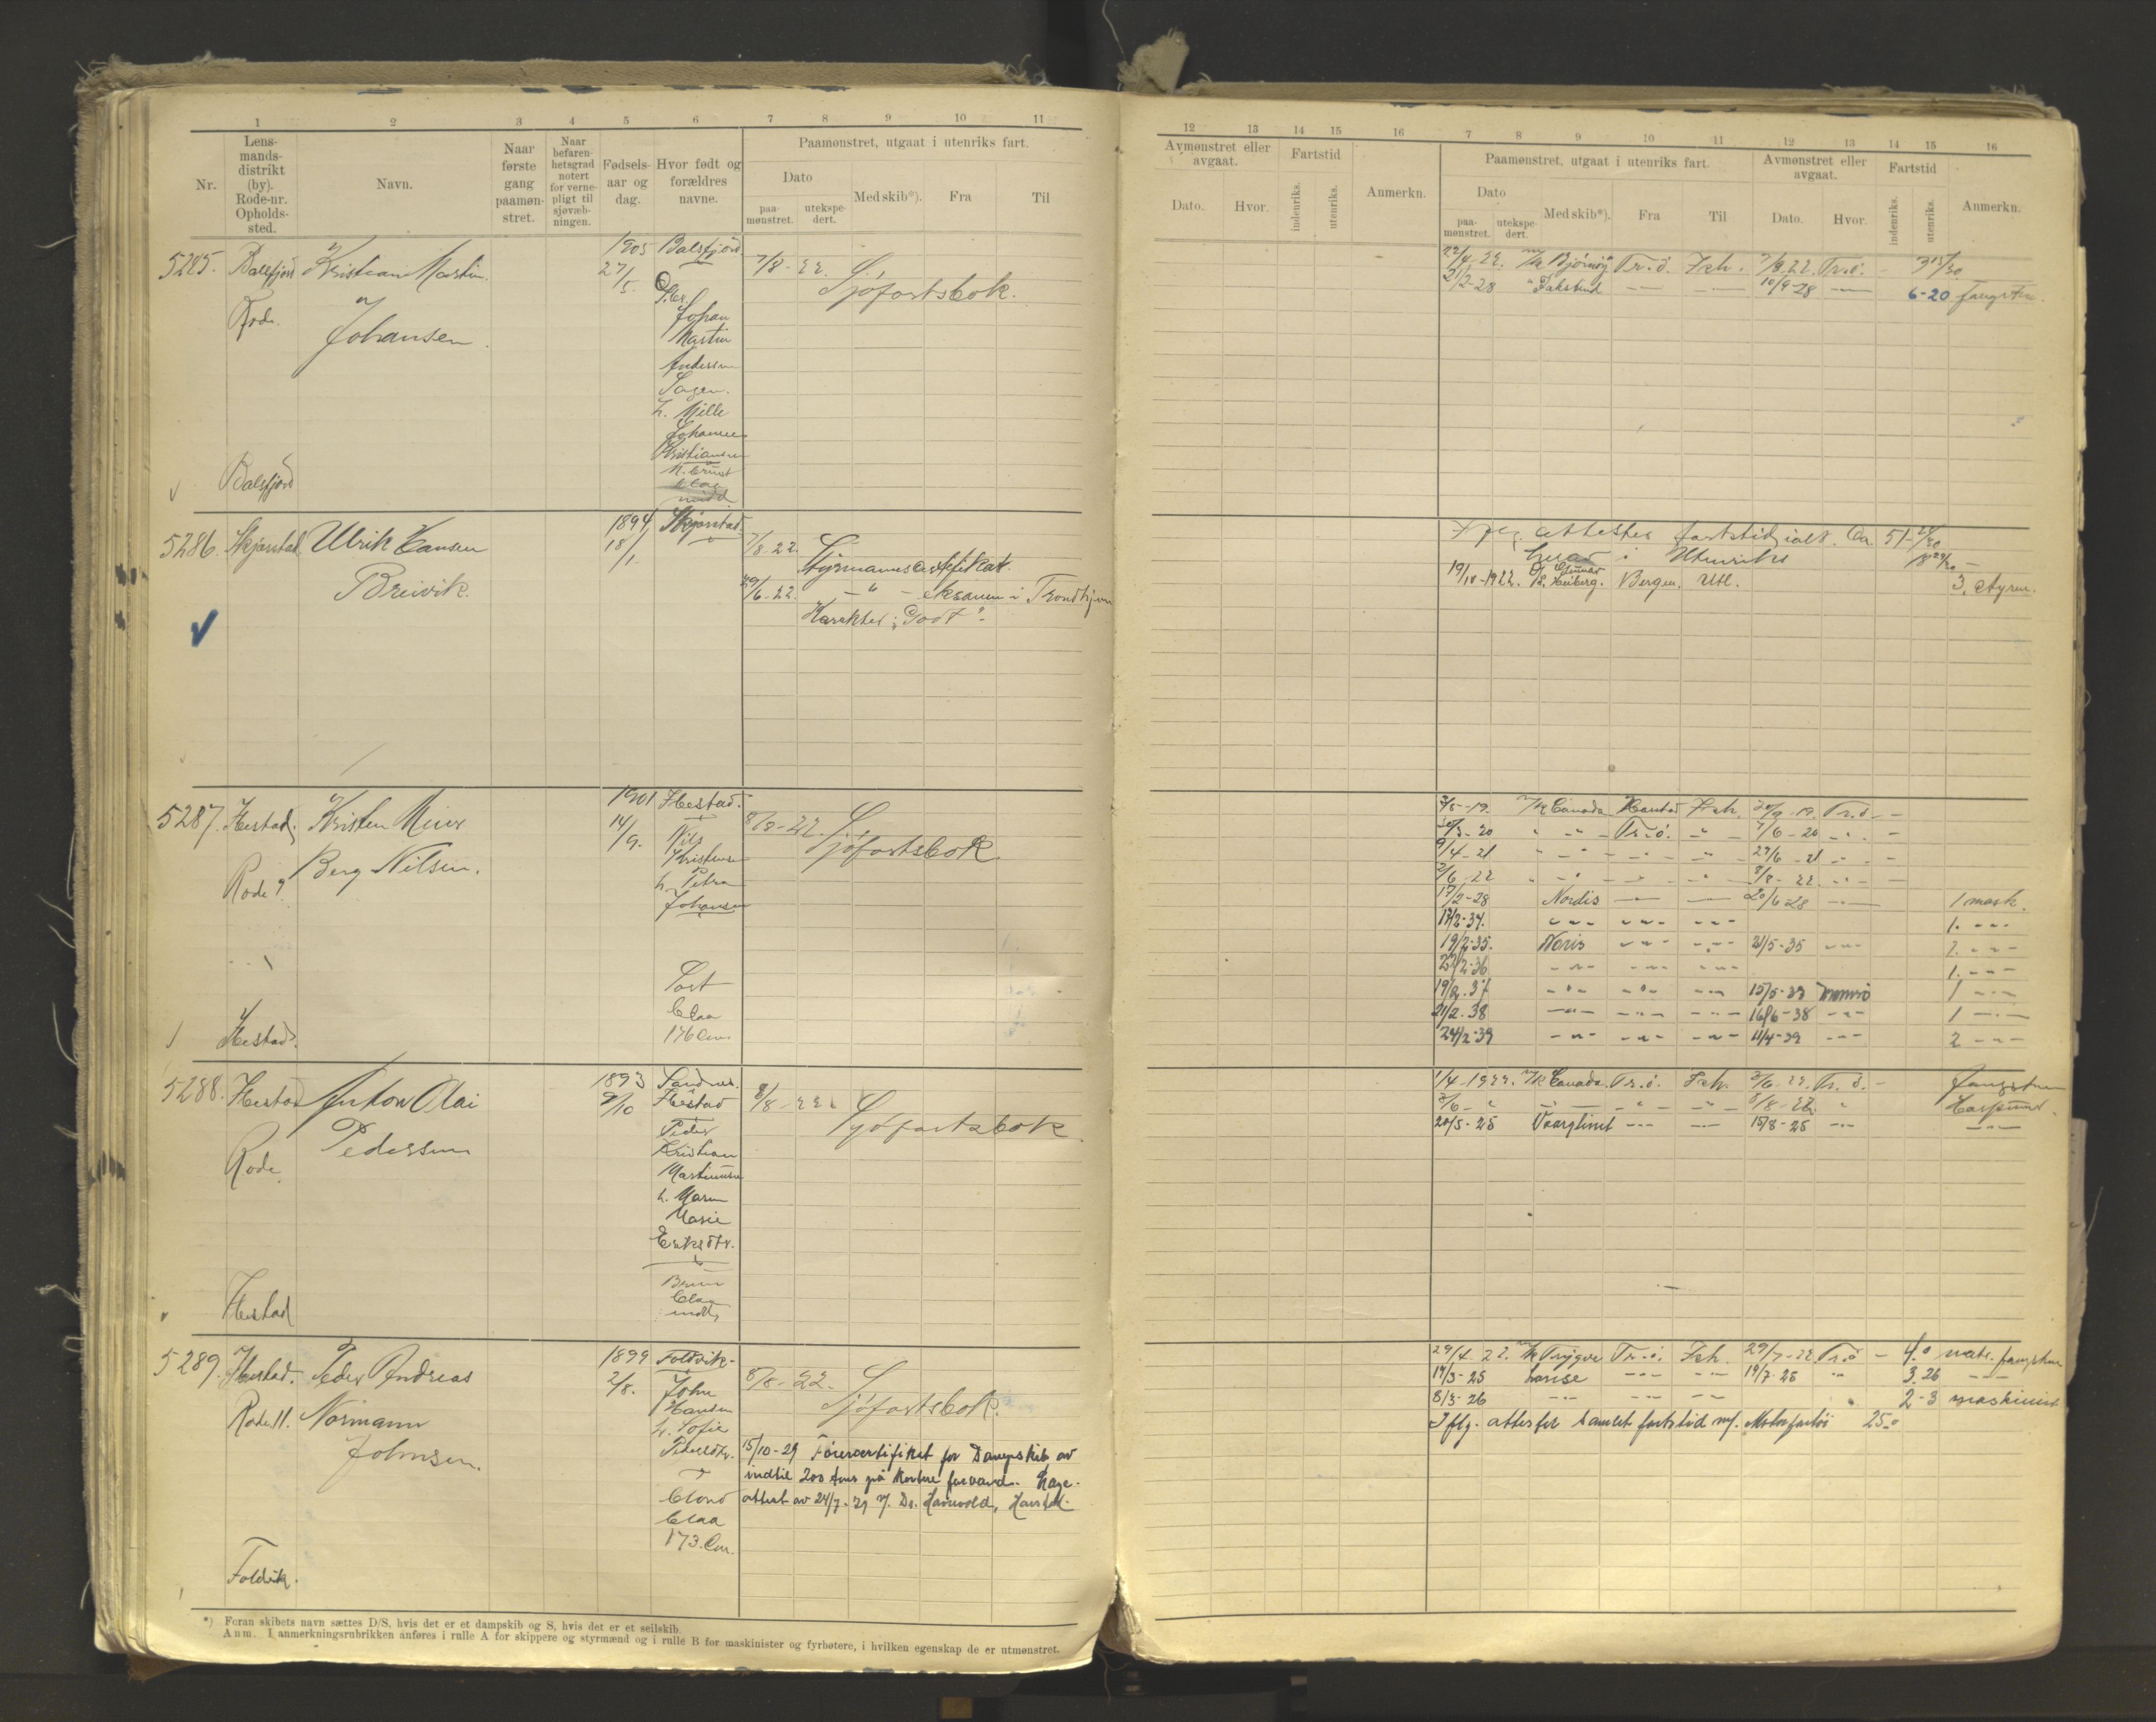 1 2 3 4 5 6 7 8 9 10 11
Nr.
Lens-
mands-
distrikt
(by).
Rode-nr.
Opholds-
sted.
Navn.
Naar
første
gang
paamøn-
stret.
Naar
befaren-
hetsgrad
notert
for verne-
pligt til
sjøvæb-
ningen.
Fødsels-
aar og
dag.
Hvor født og
forældres
navne.
Paamønstret, utgaat i utenriks fart.
Dato
paa-
mønstret.
utekspe-
dert.
Med skib*).
Fra
Til
5285. Balsfjord Kristian Martin 1905 Balsfjord
27/5.
7/8-22. Sjøfartsbok.
Rode. Johansen
Johan
Martin
Andersen
h. Mille
Johanne
Kristiansen
Balsfjord
5286. Skjærstad Ulrik Hansen 1894 Skjærstad
18/1
7/8-22. Styrmannscertifikat.
Breivik.
29/6-22. - " - eksamen i Trondhjem
Karakter: "Godt".
5287. Ibestad. Kristen Meier 1901 Ibestad.
14/9.
8/8-22. Sjøfartsbok
Berg Nilsen.
Rode 9
Nils
Kristensen
h. Petra
Johansen
Sort
Blaa
176 Cm.
Ibestad.
5288. Ibestad Anton Olai 1893 Sandnes.
9/10 Ibestad
8/8-22. Sjøfartsbok
Pedersen
Rode.
Peder
Kristian
Martinussen
h. Maren
Marie
Eriksdtr.
Brun
Blaa
midd.
Ibestad
5289. Ibestad. Peder Andreas 1899 Foldvik-
2/8.
8/8-22. Sjøfartsbok.
Rode 11. Normann
Johnsen.
John
Hansen
h. Sofie
Pedersdtr.
15/10-29 Førercertifikat for Dampskib av
indtil 200 tons på kortere farvand. Læge-
attest av 24/7-29 Dr. Harstad.
Blond
Blaa
173. Cm.
Foldvik.
*) Foran skibets navn sættes D/S, hvis det er et dampskib og S, hvis det er et seilskib.
Anm. I anmerkningsrubrikken anføres i rulle A for skippere og styrmænd og i rulle B for maskinister og fyrbøtere, i hvilken egenskap de er utmønstret.
12 13 14 15 16 7 8 9 10 11 12 13 14 15 16
Avmønstret eller
avgaat.
Fartstid
Dato.
Hvor.
indenriks.
utenriks.
Anmerkn.
Paamønstret, utgaat i utenriks fart.
Dato
paa-
mønstret.
utekspe-
dert.
Med skib*).
Fra
Til
Avmønstret eller
avgaat.
Dato.
Hvor.
Fartstid
indenriks.
utenriks.
Anmerkn.
22/4-22. M/K Bjørnøy Tr.ö. Ish. 7/8.22. Tr.ö. - 3 15/30
21/2-28 10/9-28 6-20 fangstm.
Ifølg. attester fartstid ialt. Ca 51-
i Utenriks
19/10-1922. D/S Gunnar Heiberg. Bergen. Utl. 3. styrm.
3/5-19. M/K Canada Harstad Ish. Tr.ö. -
20/3-20 " - " - Tr.ö. - " - 7/6-20 - " - -
9/4-21 " - " - - " - - " - 27/6-21 - " - -
2/6-22 " - " - - " - - " - 8/8-22 - " - -
17/2-28 Nordis - " - 20/6-28 - " - 1 mask.
17/2-34. - " - - " - - " - 1. - " -
19/2-35. Noris - " - - " - 21/5-35 - " - 1. - " -
22/2-36 - " - - " - - " - 1. - " -
19/2-37 - " - - " - - " - 15/5-37 Tromsø 1 - " -
21/2-38 - " - - " - - " - 16/6-38 - " - 1 - " -
24/2-39 - " - - " - - " - 11/4-39 - " - 2 - " -
1/4-1922. M/K Canada. Tr.ö. Ish. 2/6-22. Tr.ö. - Fangstm
2/6- " - " - - " - 8/8-22 " Harpuner.
20/5-25 Vaarglimt - " - - " - 15/8-25 - " - - " -
29/4-22. M/K Trygve Tr.ö. Ish. 29/7-22 Tr.ö - 4.0 matr. fangstm
19/3-25 Louise - " - - " - 19/7-25 " 3.26 - " -
8/3-26 - " - - " - - " - 2-3 maskinist
Iflg. attester samlet fartstid m/ Motorfartøi 25.0